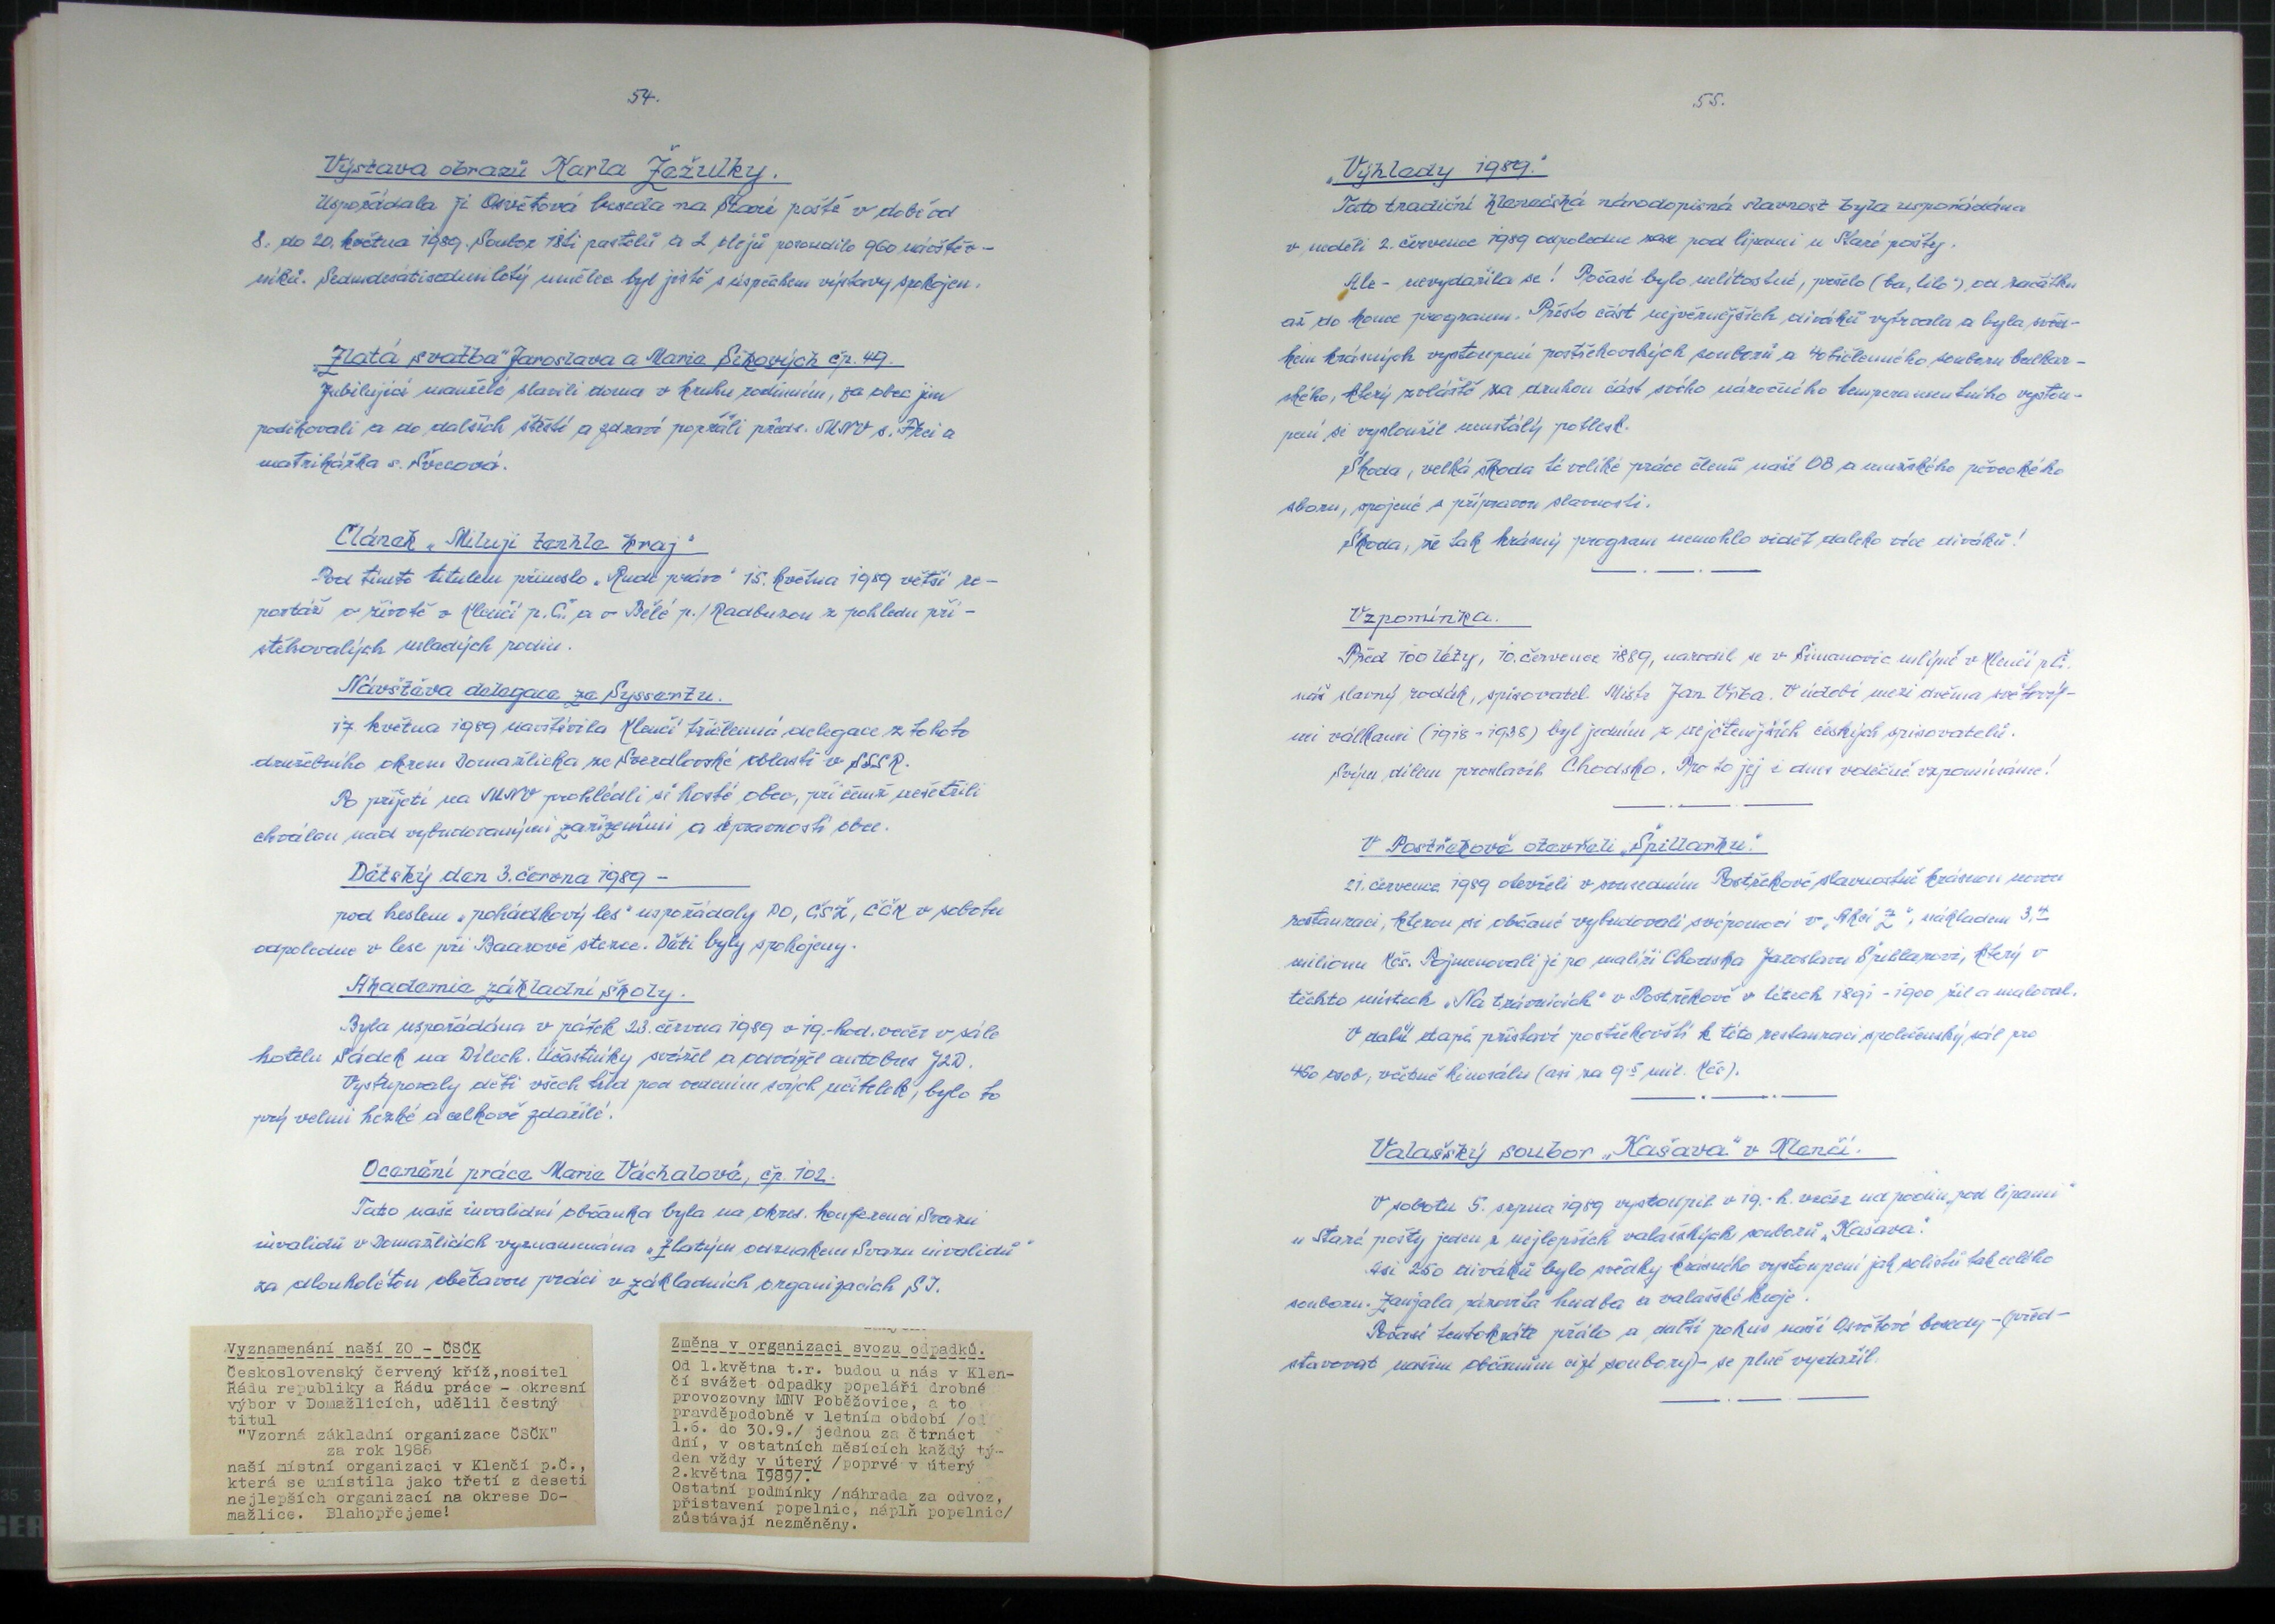 54.
Výstava obrazů Karla Žežulky.
Uspořádala ji Osvětová beseda na Staré poště v době od
8. do 20. května 1989. Soubor 18ti pastelů a 2 olejů posoudilo 960 návštěv-
níků. Sedmdesátisedmiletý umělec byl jistě s úspěchem výstavy spokojen.
„Zlatá svatba" Jaroslava a Marie Síkových čp. 49.
Jubilující manželé slavili doma v kruhu rodinném, za obec jim
poděkovali a do dalších štěstí a zdraví popřáli předs. MNV s. Frei a
matrikářka s. Švecová.
Článek „Miluji tenhle kraj"
Pod tímto titulem přineslo „Rudé právo" 15. května 1989 větší re-
portáž o životě v Klenčí p. Č. a v Bělé p./Radbuzou z pohledu při-
stěhovalých mladých rodin.
Návštěva delegace ze Syssertu.
17. května 1989 navštívila Klenčí tříčlenná delegace z tohoto
družebního okresu Domažlicka ze Sverdlovské oblasti v SSSR.
Po přijetí na MNV prohlédli si hosté obec, při čemž nešetřili
chválou nad vybudovanými zařízeními a úpravností obce.
Dětský den 3. června 1989 -
pod heslem „pohádkový les" uspořádaly PO, ČSŽ, ČČK v sobotu
odpoledne v lese při Baarově stezce. Děti byly spokojeny.
Akademie základní školy.
Byla uspořádána v pátek 23. června 1989 v 19.-hod. večer v sále
hotelu Sádek na Dílech. Účastníky svážel a odvážel autobus JZD.
Vystupovaly děti všech tříd pod vedením svých učitelek, bylo to
prý velmi hezké a celkově zdařilé.
Ocenění práce Marie Váchalové, čp. 102.
Tato naše invalidní občanka byla na okres. konferenci Svazu
invalidů v Domažlicích vyznamenána „Zlatým odznakem Svazu invalidů"
za dlouholetou obětavou práci v základních organizacích SI.
Vyznamenání naší ZO - ČSČK
Československý červený kříž,nositel
Řádu republiky a Řádu práce - okresní
výbor v Domažlicích, udělil čestný
titul
"Vzorná základní organizace ČSČK"
za rok 1988
naší místní organizaci v Klenčí p.Č.,
která se umístila jako třetí z deseti
nejlepších organizací na okrese Do-
mažlice. Blahopřejeme!
Změna v organizaci svozu odpadků.
Od 1.května t.r. budou u nás v Klen-
čí svážet odpadky popeláři drobné
provozovny MNV Poběžovice, a to
pravděpodobně v letním období /od
1.6. do 30.9./ jednou za čtrnáct
dní, v ostatních měsících každý tý-
den vždy v úterý /poprvé v úterý
2.května 1989/.
Ostatní podmínky /náhrada za odvoz,
přistavení popelnic, náplň popelnic/
zůstávají nezměněny.
55.
„Výhledy 1989."
Tato tradiční klenečská národopisná slavnost byla uspořádána
v neděli 2. července 1989 odpoledne zase pod lipami u Staré pošty.
Ale - nevydařila se! Počasí bylo nelítostné, pršelo (ba „lilo") od začátku
až do konce programu. Přesto část nejvěrnějších diváků vytrvala a byla svěd-
kem krásných vystoupení postřekovských souborů a 40tičlenného souboru bulhar-
ského, který zvláště za druhou část svého náročného temperamentního vystou-
pení si vysloužil neustálý potlesk.
Škoda, velká škoda té veliké práce členů naší OB a mužského pěveckého
sboru, spojené s přípravou slavnosti.
Škoda, že tak krásný program nemohlo vidět daleko více diváků!
Vzpomínka.
Před 100 léty, 10. července 1889, narodil se v Šimanovic mlýně v Klenčí p Č.
náš slavný rodák, spisovatel Mistr Jan Vrba. V údobí mezi dvěma světový-
mi válkami (1918 - 1938) byl jedním z nejčtenějších českých spisovatelů.
Svým dílem proslavil Chodsko. Proto jej i dnes vděčně vzpomínáme!
V Postřekově otevřeli „Špillarku."
21. července 1989 otevřeli v sousedním Postřekově slavnostně krásnou novou
restauraci, kterou si občané vybudovali svépomocí v „Akci Z", nákladem 3,4
milionu Kčs. Pojmenovali ji po malíři Chodska Jaroslavu Špillarovi, který v
těchto místech „Na trávnicích" v Postřekově v létech 1891 - 1900 žil a maloval.
V další etapě přistaví postřekovští k této restauraci společenský sál pro
460 osob, včetně kinosálu (asi za 9.5 mil. Kčs).
Valašský soubor „Kašava" v Klenčí.
V sobotu 5. srpna 1989 vystoupil v 19.- h. večer na podiu „pod lipami"
u Staré pošty jeden z nejlepších valašských souborů „Kašava."
Asi 250 diváků bylo svědky krásného vystoupení jak solistů tak celého
souboru. Zaujala rázovitá hudba a valašské kroje.
Počasí tentokráte přálo a další pokus naší Osvětové besedy - (před-
stavovat našim občanům cizí soubory) - se plně vydařil.